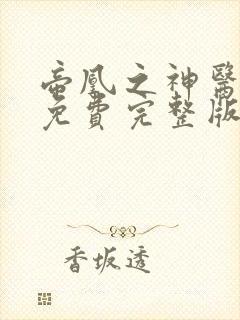 帝凰之神醫
免費完整版
香坂透